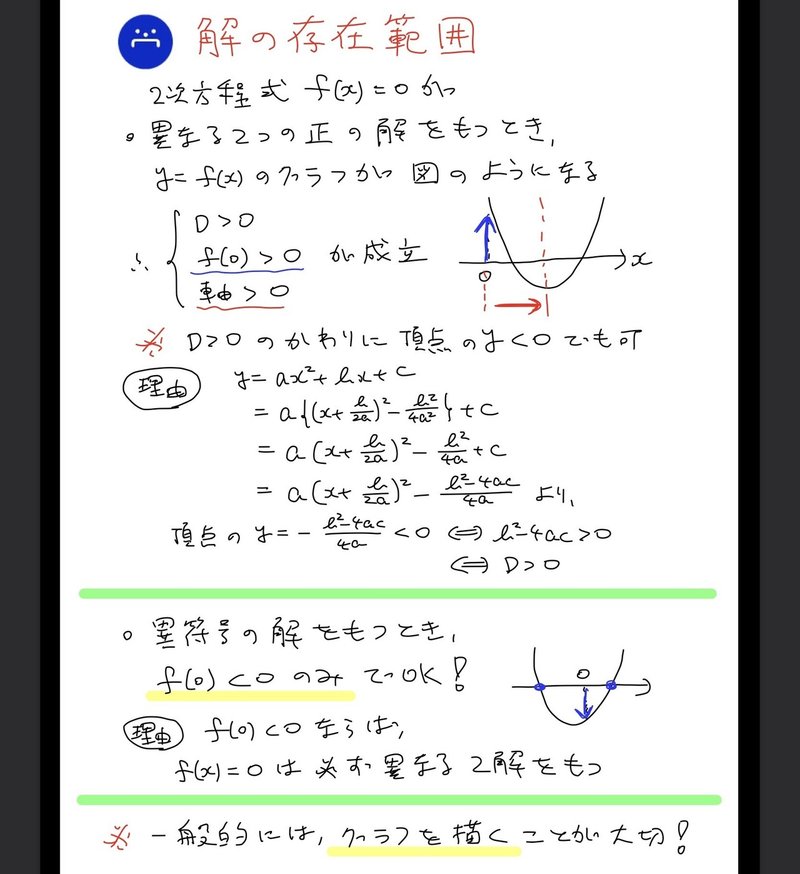 解の存在範囲
2次方程式 f(x)=0が
○ 異なる2つの正の解をもつとき、
y=f(x)のグラフが図のようになる
∴ { D>0
f(0)>0 が成立
軸>0
0 x
※ D>0のかわりに頂点のy<0でも可
理由 y=ax²+bx+c
=a{(x+b/2a)²-b²/4a²}+c
=a(x+b/2a)²-b²/4a+c
=a(x+b/2a)²-b²-4ac/4a より、
頂点のy=-b²-4ac/4a<0 ⇔ b²-4ac>0
⇔ D>0
○ 異符号の解をもつとき、
f(0)<0のみでOK!
0
理由 f(0)<0ならば、
f(x)=0は必ず異なる2解をもつ
※ 一般的には、グラフを描くことが大切!